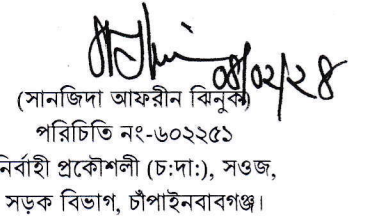 ০৪/০২/২৪
(সানজিদা আফরীন ঝিনুক)
পরিচিতি নং-৬০২২৫১
নির্বাহী প্রকৌশলী (চ:দা:), সওজ,
সড়ক বিভাগ, চাঁপাইনবাবগঞ্জ।